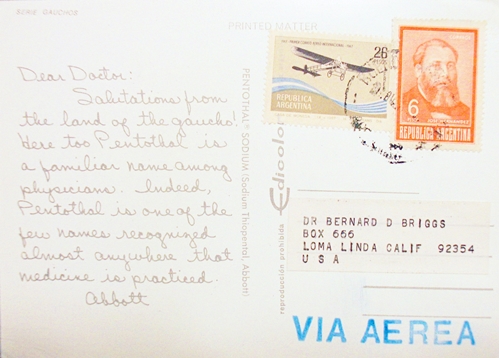 SERIE GAUCHOS
PRINTED MATTER
Dear Doctor:
Salutations from
the land of the gaucho!
Here too Pentothal is
a familiar name among
physicians. Indeed,
Pentothal is one of the
few names recognized
almost anywhere that
medicine is practiced.
Abbott
PENTOTHAL® SODIUM (Sodium Thiopental, Abbott)
Edicolor
reproducción prohibida
26
PESOS
REPUBLICA
ARGENTINA
6
PESOS
REPUBLICA ARGENTINA
DR BERNARD D BRIGGS
BOX 666
LOMA LINDA CALIF 92354
U S A
VIA AEREA